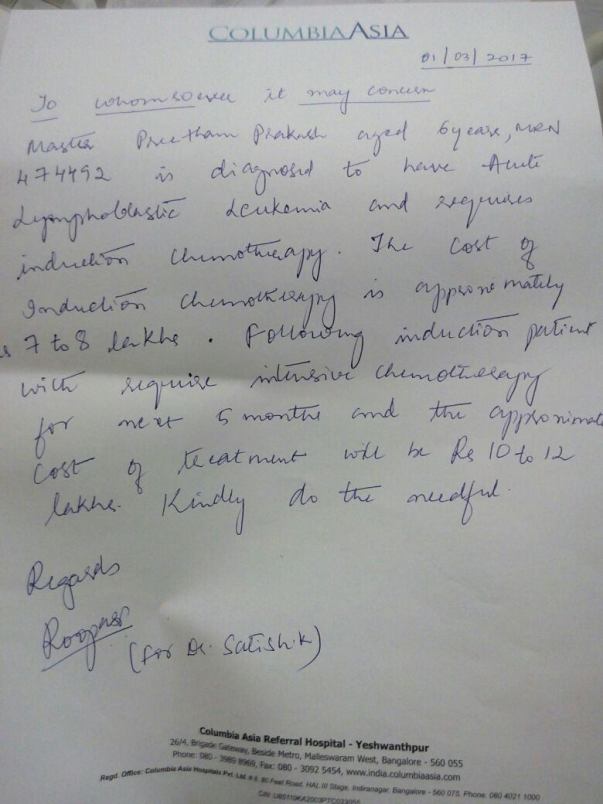 COLUMBIA ASIA
01/03/2017
To whomsoever it may concern
Master Preetham Prakash aged 6 years, MRN
474492 is diagnosed to have Acute
Lymphoblastic Leukemia and requires
induction chemotherapy. The cost of
Induction chemotherapy is approximately
7 to 8 lakhs. Following induction patient
with require intensive chemotherapy
for next 5 months and the approximate
cost of treatment will be Rs 10 to 12
lakhs. Kindly do the needful.
Regards
(for Dr. Satish.k)
Columbia Asia Referral Hospital - Yeshwanthpur
26/4, Brigade Gateway, Beside Metro, Malleswaram West, Bangalore - 560 055
Phone: 080 - 3989 8969, Fax: 080 - 3092 5454, www.india.columbiaasia.com
Regd. Office: Columbia Asia Hospitals Pvt. Ltd. Road, HAL III Stage, Indiranagar, Bangalore - 560 075. Phone: 080 4021 1000